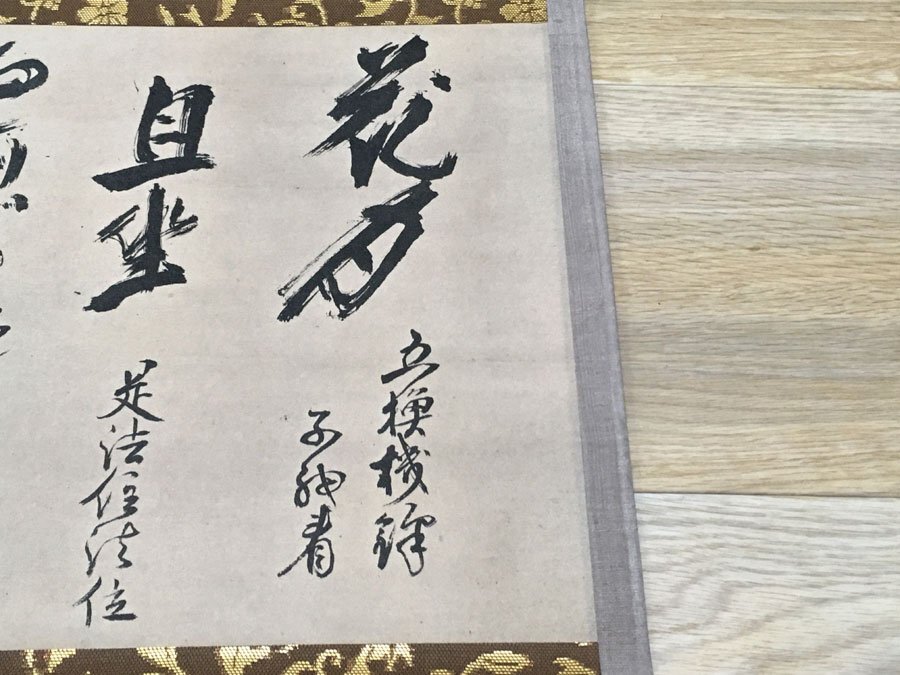 花月
互換機鋒
子細看
且坐
是法住法位